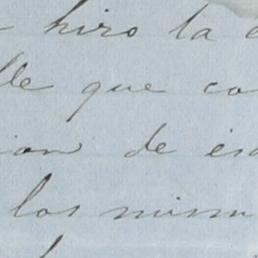 hizo la
que co
ion de es
los mism